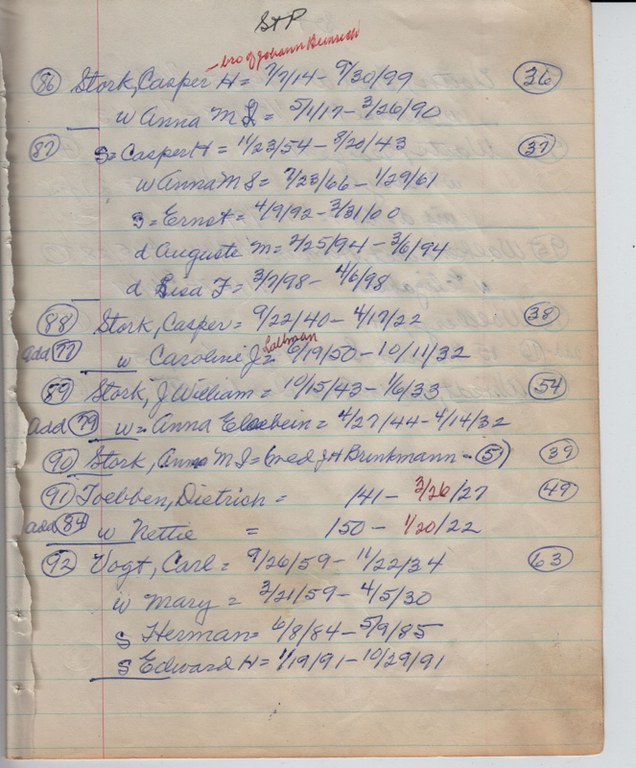 St P
- bro of Johann Heinrich
86 Stork, Casper H = 7/7/14 - 9/30/99 36
w Anna M L = 5/1/17 - 3/26/90
87 S = Casper H = 11/23/54 - 8/20/43 37
w Anna M S = 7/23/66 - 1/29/61
S = Ernst = 4/9/92 - 3/31/00
d Auguste M = 7/25/94 - 3/6/94
d Lisa F = 3/7/98 - 4/6/98
88 Stork, Casper = 9/22/40 - 4/17/22 38
add 77 w Caroline J = 6/19/50 - 10/11/32
89 Stork, J William = 10/15/43 - 1/6/33 54
add 79 w = Anna = 4/27/44 - 4/14/32
90 Stork, Anna M I = (med J H Brinkmann - 5) 39
91 Toebben, Dietrich = /41 - 3/26/27 49
add 84 w Nettie = /50 - 1/20/22
92 Vogt, Carl = 9/26/59 - 11/22/34 63
w Mary = 3/21/59 - 4/5/30
S Herman = 6/8/84 - 5/9/85
S Edward H = 1/19/91 - 10/29/91